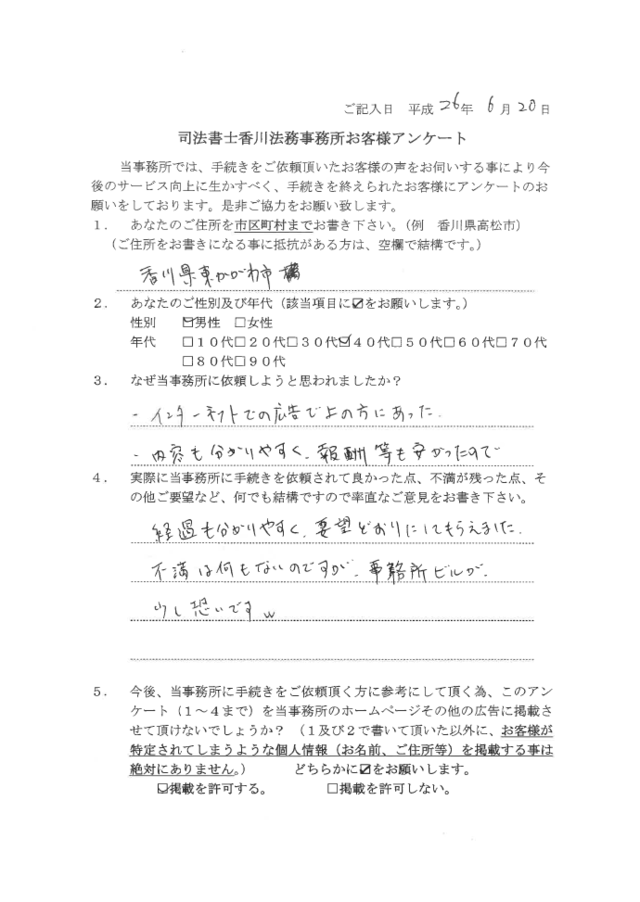 ご記入日 平成 26年 6月20日
司法書士香川法務事務所お客様アンケート
当事務所では、手続きをご依頼頂いたお客様の声をお伺いする事により今
後のサービス向上に生かすべく、手続きを終えられたお客様にアンケートのお
願いをしております。是非ご協力をお願い致します。
1. あなたのご住所を市区町村までお書き下さい。(例 香川県高松市)
(ご住所をお書きになる事に抵抗がある方は、空欄で結構です。)
香川県東かがわ市
2. あなたのご性別及び年代(該当項目に☑をお願いします。)
性別 ☑男性 □女性
年代 □10代□20代□30代☑40代□50代□60代□70代
□80代□90代
3. なぜ当事務所に依頼しようと思われましたか?
・インターネットでの広告で上の方にあった.
・内容も分かりやすく、報酬等も安かったので
4. 実際に当事務所に手続きを依頼されて良かった点、不満が残った点、そ
の他ご要望など、何でも結構ですので率直なご意見をお書き下さい。
経過も分かりやすく、要望どおりにしてもらえました.
不満は何もないのですが、事務所ビルが、
少し恐いですw
5. 今後、当事務所に手続きをご依頼頂く方に参考にして頂く為、このアン
ケート(1~4まで)を当事務所のホームページその他の広告に掲載さ
せて頂けないでしょうか? (1及び2で書いて頂いた以外に、お客様が
特定されてしまうような個人情報(お名前、ご住所等)を掲載する事は
絶対にありません。) どちらかに☑をお願いします。
☑掲載を許可する。 □掲載を許可しない。